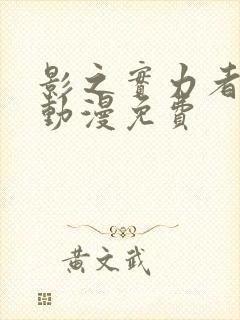 影之實力者
動漫免費
黃文武